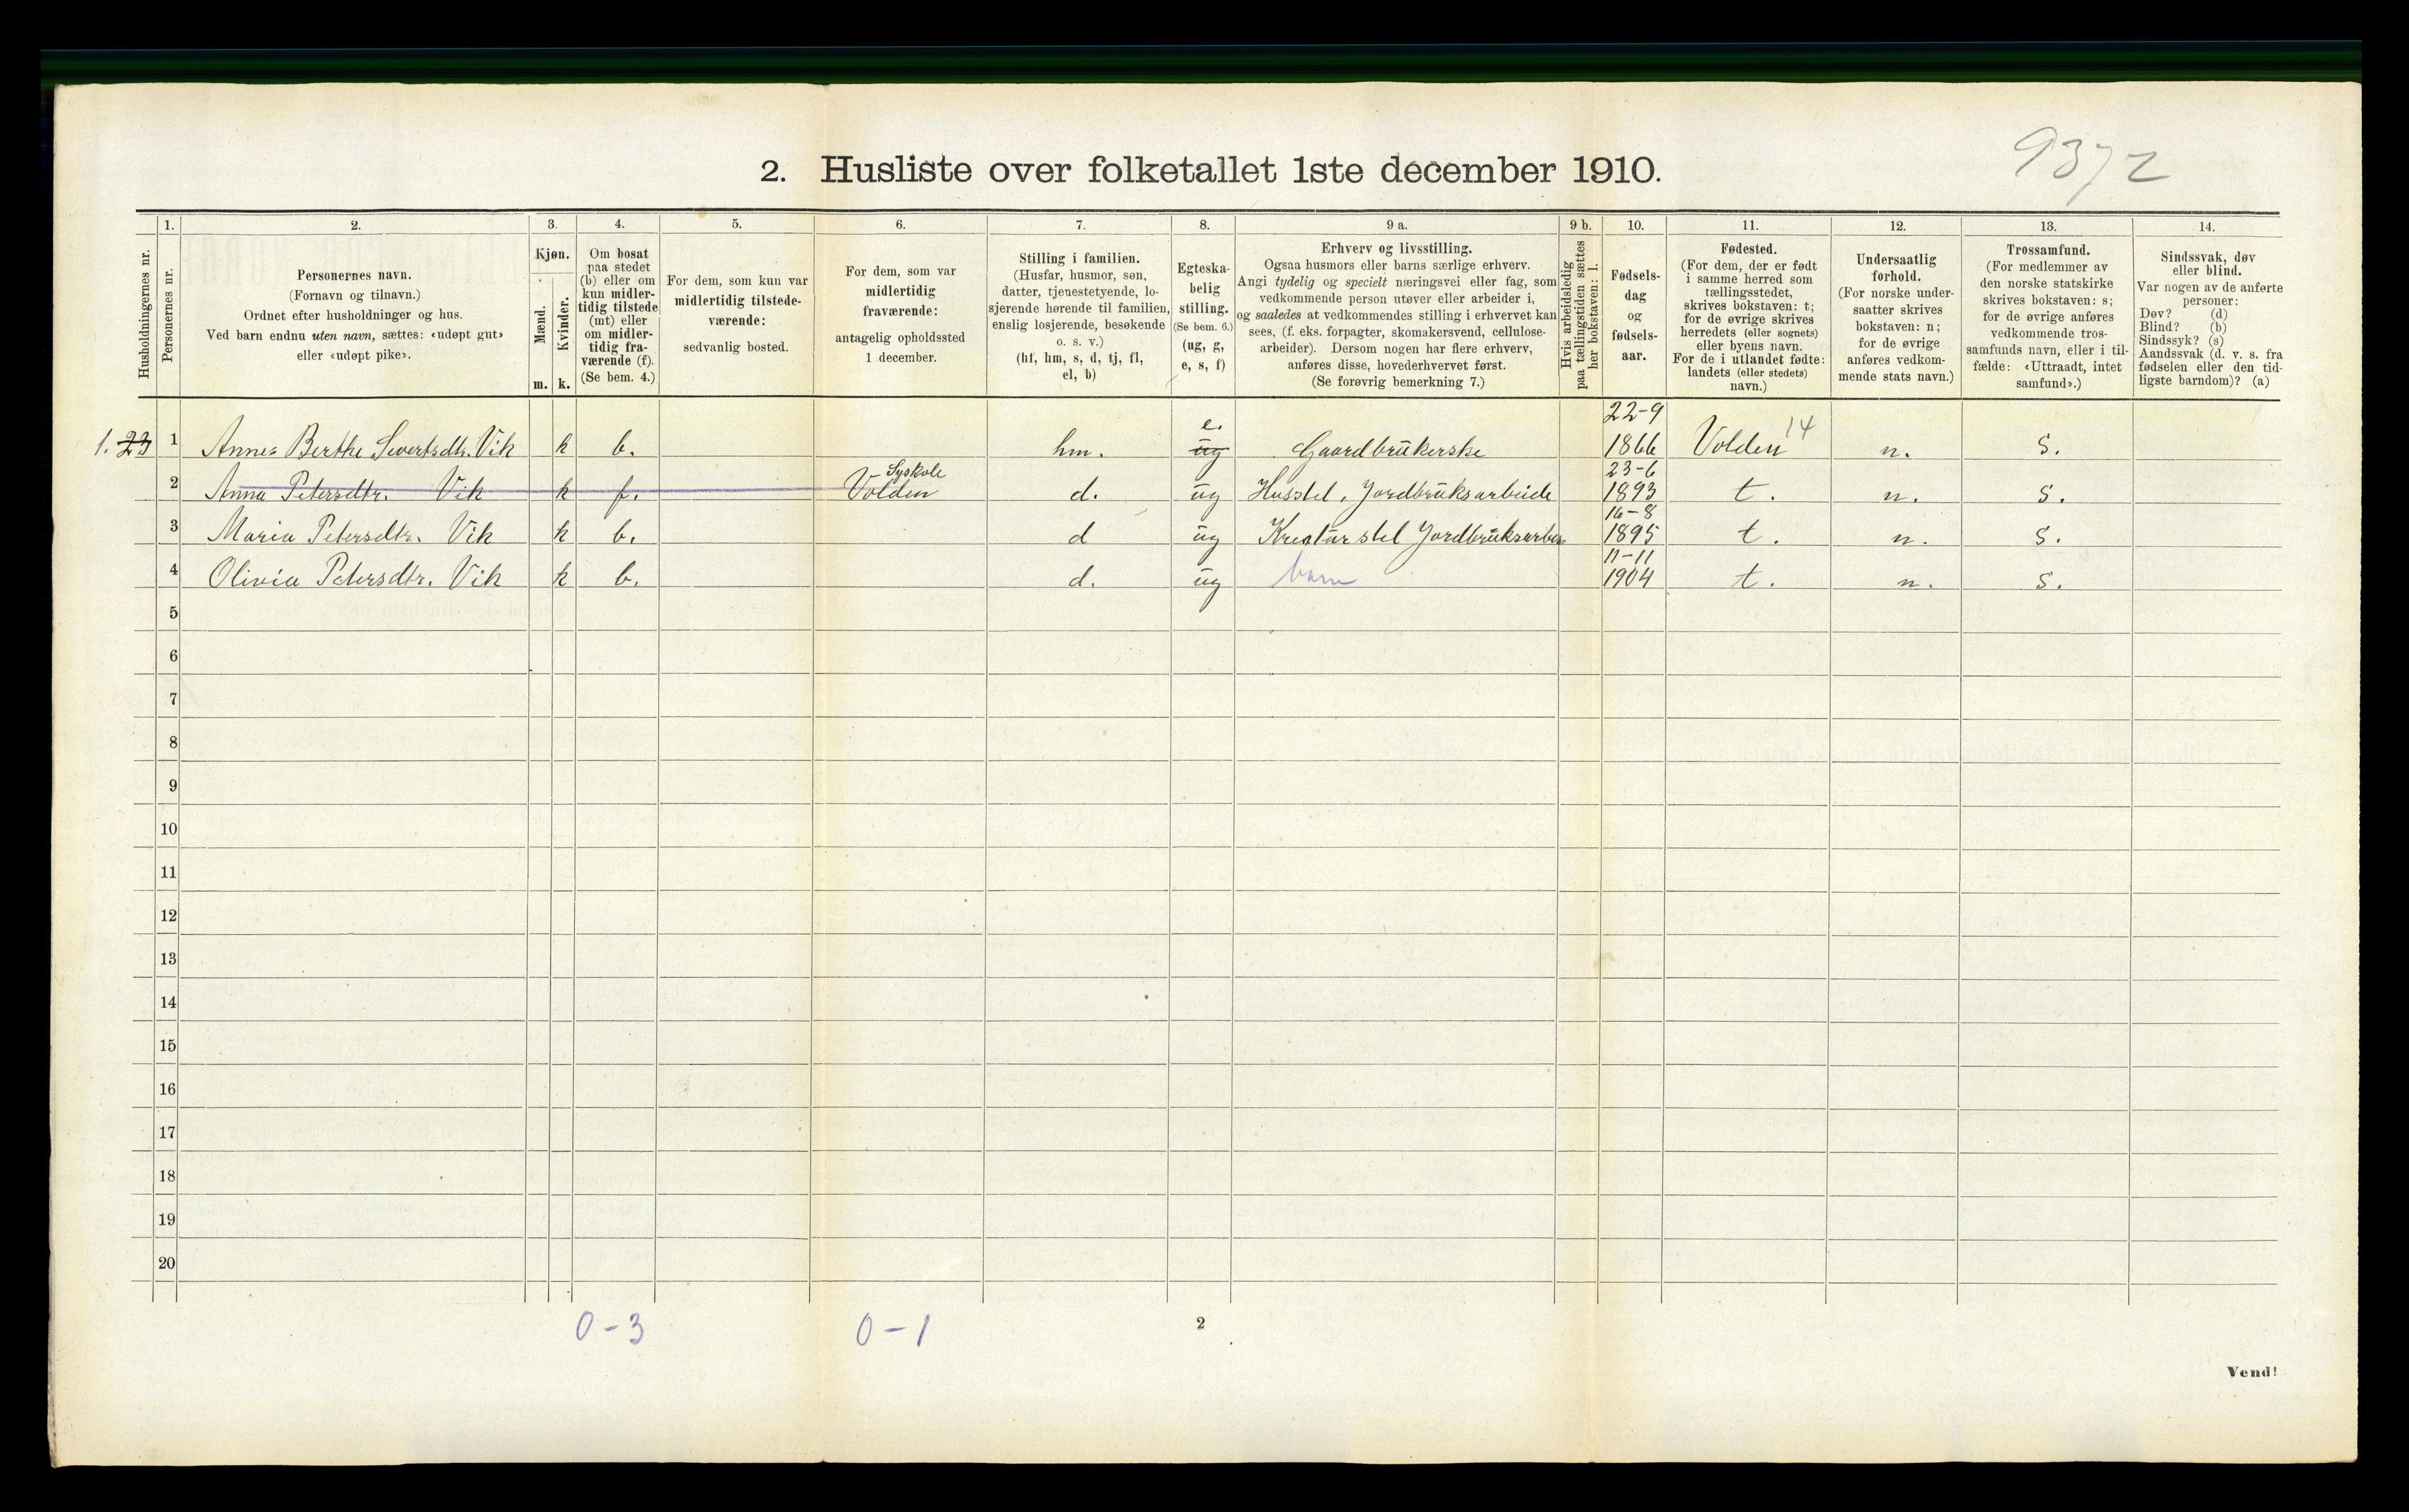 9372
2. Husliste over folketallet 1ste december 1910.
Husholdningernes nr.
1.
Personernes nr.
2.
Personernes navn.
(Fornavn og tilnavn.)
Ordnet efter husholdninger og hus.
Ved barn endnu uten navn, sættes: «udøpt gut»
eller «udøpt pike».
3.
Kjøn.
Mænd.
Kvinder.
m. k.
4.
Om bosat
paa stedet
(b) eller om
kun midler-
tidig tilstede
(mt) eller
om midler-
tidig fra-
værende (f).
(Se bem. 4.)
5.
For dem, som kun var
midlertidig tilstede-
værende:
sedvanlig bosted.
6.
For dem, som var
midlertidig
fraværende:
antagelig opholdssted
1 december.
7.
Stilling i familien.
(Husfar, husmor, søn,
datter, tjenestetyende, lo-
sjerende hørende til familien,
enslig losjerende, besøkende
o. s. v.)
(hf, hm, s, d, tj, fl,
el, b)
8.
Egteska-
belig
stilling.
(Se bem. 6.)
(ug, g,
e, s, f)
9 a.
Erhverv og livsstilling.
Ogsaa husmors eller barns særlige erhverv.
Angi tydelig og specielt næringsvei eller fag, som
vedkommende person utøver eller arbeider i,
og saaledes at vedkommendes stilling i erhvervet kan
sees, (f. eks. forpagter, skomakersvend, cellulose-
arbeider). Dersom nogen har flere erhverv,
anføres disse, hovederhvervet først.
(Se forøvrig bemerkning 7.)
9 b.
Hvis arbeidsledig
paa tællingstiden sættes
her bokstaven: l.
10.
Fødsels-
dag
og
fødsels-
aar.
11.
Fødested.
(For dem, der er født
i samme herred som
tællingsstedet,
skrives bokstaven: t;
for de øvrige skrives
herredets (eller sognets)
eller byens navn.
For de i utlandet fødte:
landets (eller stedets)
navn.)
12.
Undersaatlig
forhold.
(For norske under-
saatter skrives
bokstaven: n;
for de øvrige
anføres vedkom-
mende stats navn.)
13.
Trossamfund.
(For medlemmer av
den norske statskirke
skrives bokstaven: s;
for de øvrige anføres
vedkommende tros-
samfunds navn, eller i til-
fælde: «Uttraadt, intet
samfund».)
14.
Sindssvak, døv
eller blind.
Var nogen av de anførte
personer:
Døv? (d)
Blind? (b)
Sindssyk? (s)
Aandssvak (d. v. s. fra
fødselen eller den tid-
ligste barndom)? (a)
1. 23 1 Anne Berthe Severtsdtr. Vik k b. hm. e. ug Gaardbrukerske 22-9 1866 Volden 14 n. s.
2 Anna Petersdtr. Vik k f. Syskole Volden d. ug Husstel, Jordbruksarbeide 23-6 1893 t. n. s.
3 Maria Petersdtr. Vik k b. d ug Kreaturstel Jordbruksarbei 16-8 1895 t. n. s.
4 Olivia Petersdtr. Vik k b. d. ug barn 11-11 1904 t. n. s.
5
6
7
8
9
10
11
12
13
14
15
16
17
18
19
20
0-3 0-1
2
Vend!